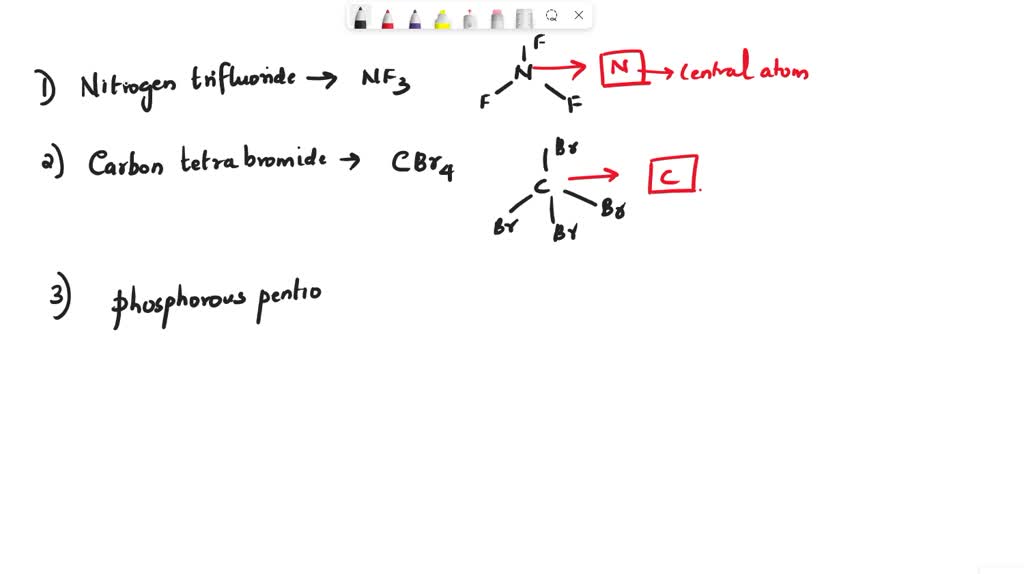 1) Nitrogen trifluoride → NF3 F N F F → N → Central atom
2) Carbon tetrabromide → CBr4 Br C Br Br Br → C
3) phosphorous pentio